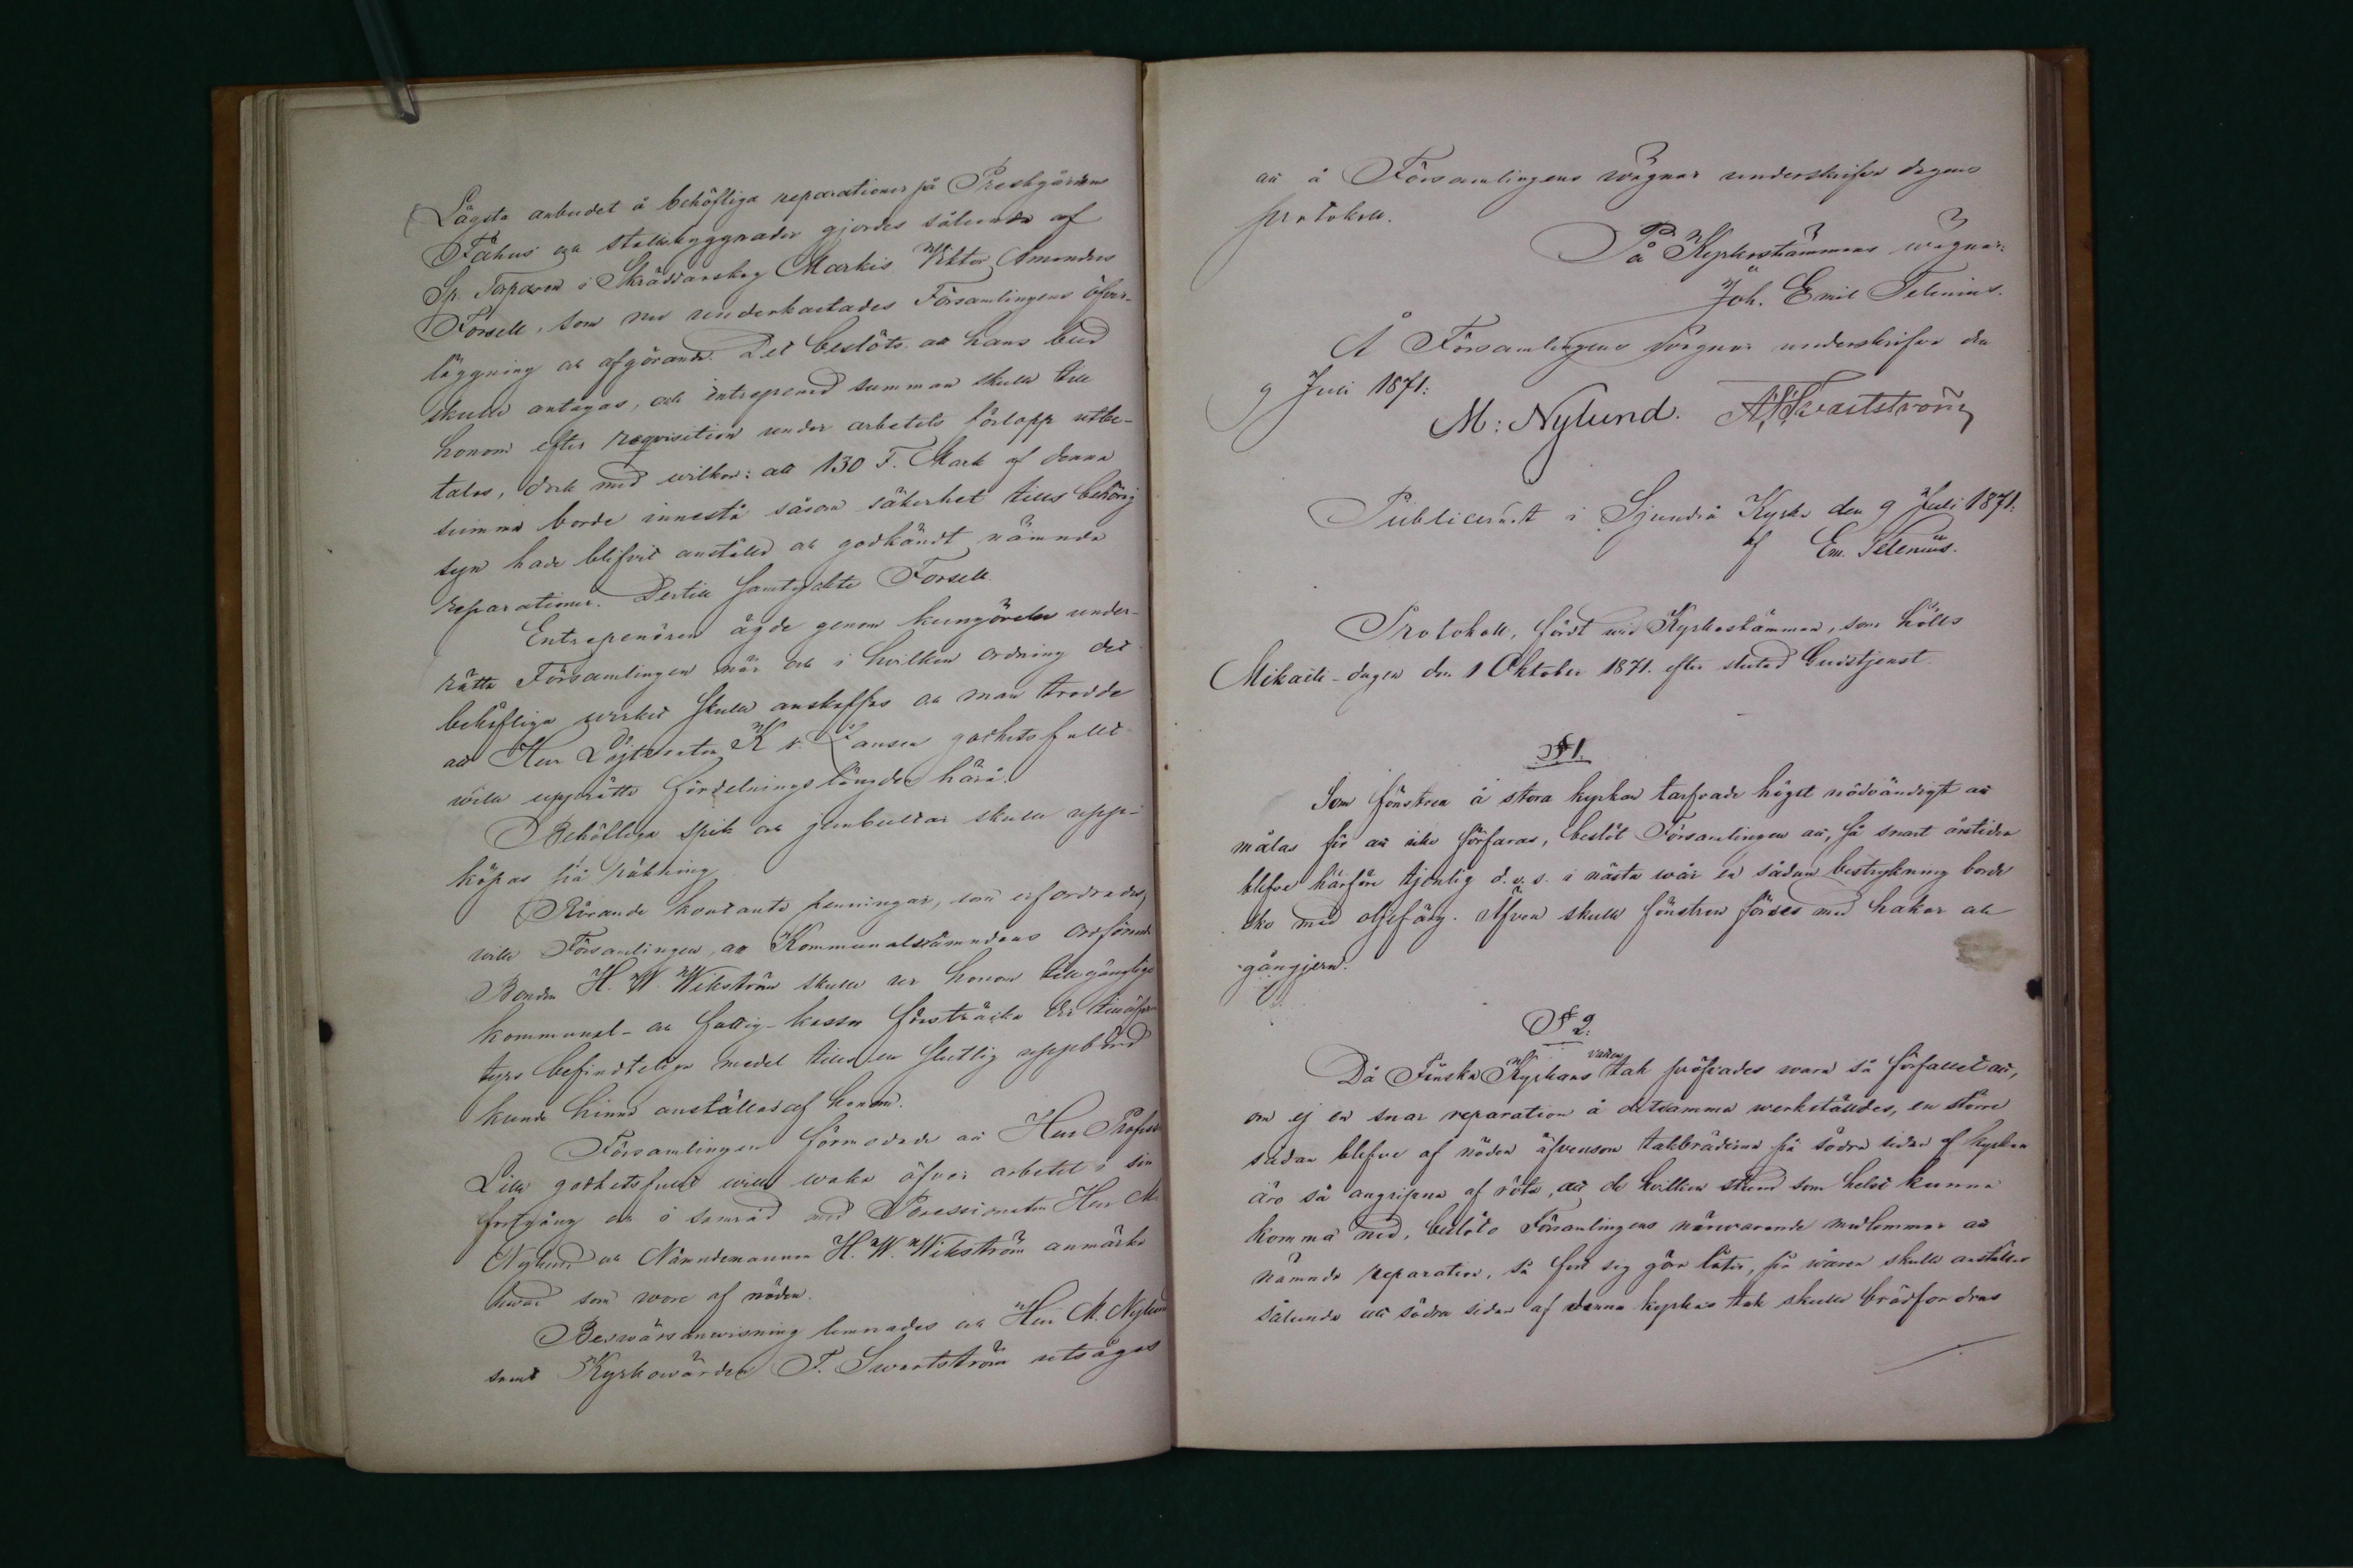 Lägsta anbudet å behöfliga reparationer på Prestgårdens
Fähus och stallsbyggnader gjordes sålunda af
Sp. Torparen i Skräddarskog Markis Viktor Amandus
Forsell, som nu underkastades Församlingens öfver-
läggning och afgörande. Det beslöts att hans bud
skulle antagas, och entreprenad summan skulle till
honom efter reqvisition under arbetets förlopp utbe-
talas, dock med wilkor: att 130 F. Mark af denna
summa borde innestå såsom säkerhet tills behörig
syn hade blifvit anställd och godkändt nämnda
reparationer. Dertill samtyckte Forsell.
Entreprenören ägde genom kungörelse under-
rätta Församlingen när och i hvilken ordning det
behöfliga virket skulle anskaffas och man trodde
att Herr Löjtnanten K v. Jansen godhetsfullt
wille upprätta fördelningslängden härå.
Behöfliga spik och jernbultar skulle upp-
köpas på räkning.
Rörande kontanta penningar, som erfordrades,
wille Församlingen, att Kommunalnämndens ordförande
Bonden H. W. Wikström skulle ur honom tillgängliga
kommunal- och fattig-kassor försträcka det
befindteliga medel tills en slutlig uppbörd
kunde hinna anställas af honom.
Församlingen förmodade att Herr Professor
Lille godhetsfullt wille waka öfver arbetet i sin
fortgång och i samråd med Possessionaten Herr M
Nylund och Nämndemannen H. W. Wikström anmärka
hwad som wore af nöden.
Beswärsanwisning lemnades och Herr M. Nylund
samt Kyrkowärden F. Swartström utsågos
att å Församlingens wägnar underskrifva dagens
protokoll.
På Kyrkostämmans wägnar:
Joh. Emil Telenius.
Å Församlingens wägnar underskrifva den
9 Juli 1871:
M: Nylund. A F Svartström
Publiceradt i Sjundeå Kyrka den 9 Juli 1871.
af Em. Telenius.
Protokoll, fördt wid Kyrkostämman, som hölls
Mikaeli-dagen den 1 Oktober 1871. efter slutad Gudstjenst
§ 1.
Som fönstren å stora kyrkan tarfvade högst nödvändigt att
målas för att icke förfaras, beslöt Församlingen att, så snart årstiden
blefve härför tjenlig d. v. s. i nästa wår en sådan bestrykning borde
ske med oljefärg. Äfven skulle fönstren förses med hakar och
gångjern.
§ 2.
Då Finska Kyrkans vatten tak pröfvades wara så förfallet att,
om ej en snar reparation å detsamma werkställdes, en större
sådan blefve af nöden äfvensom takbräderna på södra sidan af kyrkan
äro så angripna af röta, att de hvilken stund som helst kunna
komma ned, beslöto Församlingens närwarande medlemmar att
nämnda reparation, så fort sig göra låter, på wåren skulle anställas
sålunda att södra sidan af denna kyrkas tak skulle brädfordras